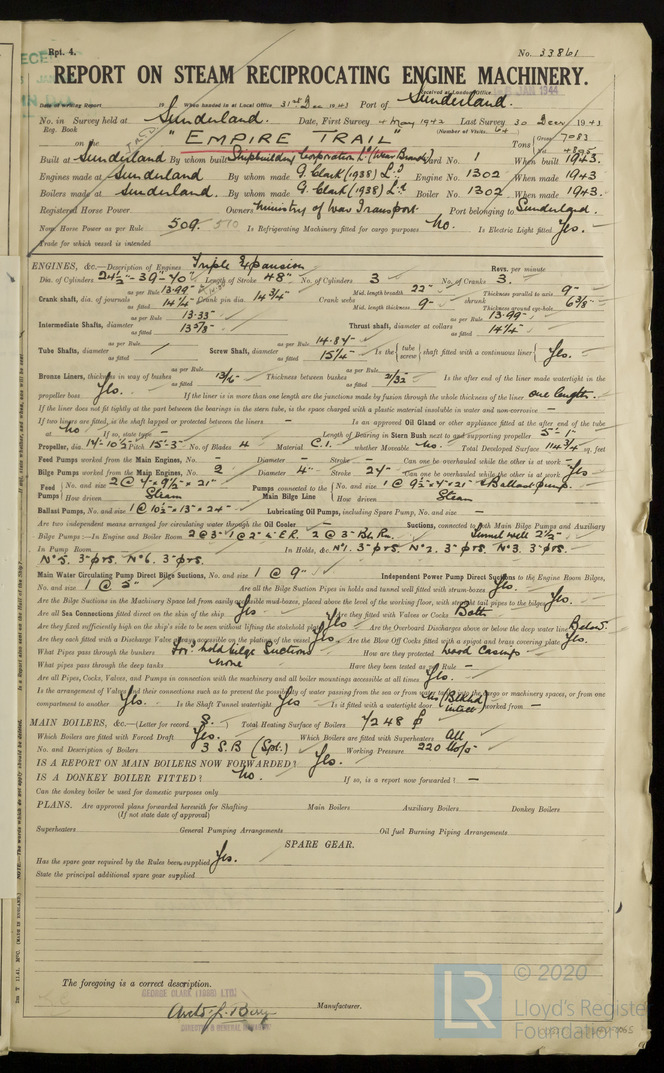 Rpt. 4.
No. 33861
REPORT ON STEAM RECIPROCATING ENGINE MACHINERY.
Received at London Office JAN 1944
Date of writing Report 19 When handed in at Local Office 31st Dec 1943 Port of Sunderland.
No. in Survey held at Sunderland. Date, First Survey 4 May 1942 Last Survey 30 Dec 1943
Reg. Book (Number of Visits 64)
on the "EMPIRE TRAIL" Tons Gross 7083
Net 4895
Built at Sunderland By whom built Shipbuilding Corporation Ld (Wear Branch) Yard No. 1 When built 1943.
Engines made at Sunderland By whom made G. Clark (1938) Ld Engine No. 1302 When made 1943
Boilers made at Sunderland. By whom made G. Clark (1938) Ld Boiler No. 1302 When made 1943.
Registered Horse Power Owners Ministry of War Transport Port belonging to Sunderland.
Nom. Horse Power as per Rule 509. 510 Is Refrigerating Machinery fitted for cargo purposes No. Is Electric Light fitted Yes.
Trade for which vessel is intended
ENGINES, &c.—Description of Engines Triple Expansion Revs. per minute
Dia. of Cylinders 24½"-39"-70" Length of Stroke 48" No. of Cylinders 3 No. of Cranks 3.
Crank shaft, dia. of journals as per Rule 13.99" as fitted 14¼" Crank pin dia. 14¾" Crank webs Mid. length breadth 22" Mid. length thickness 9" shrunk Thickness parallel to axis 9" Thickness around eye-hole 6⅜"
Intermediate Shafts, diameter as per Rule 13.33" as fitted 13⅜" Thrust shaft, diameter at collars as per Rule 13.99" as fitted 14¼"
Tube Shafts, diameter as per Rule as fitted Screw Shaft, diameter as per Rule 14.84" as fitted 15¼" Is the tube screw shaft fitted with a continuous liner Yes.
Bronze Liners, thickness in way of bushes as per Rule as fitted 13/16" Thickness between bushes as per Rule as fitted 21/32" Is the after end of the liner made watertight in the
propeller boss Yes. If the liner is in more than one length are the junctions made by fusion through the whole thickness of the liner one length.
If the liner does not fit tightly at the part between the bearings in the stern tube, is the space charged with a plastic material insoluble in water and non-corrosive —
If two liners are fitted, is the shaft lapped or protected between the liners — Is an approved Oil Gland or other appliance fitted at the after end of the tube
shaft No If so, state type — Length of Bearing in Stern Bush next to and supporting propeller 5'-1"
Propeller, dia. 17'-10½" Pitch 15'-3" No. of Blades 4 Material C.I. whether Moveable No. Total Developed Surface 114¾ sq. feet
Feed Pumps worked from the Main Engines, No. — Diameter — Stroke — Can one be overhauled while the other is at work —
Bilge Pumps worked from the Main Engines, No. 2 Diameter 4" Stroke 24" Can one be overhauled while the other is at work Yes
Feed Pumps No. and size 2 @ 7" x 9½" x 21" Pumps connected to the Main Bilge Line No. and size 1 @ 9½" x 7" x 21" + Ballast pump.
How driven Steam How driven Steam
Ballast Pumps, No. and size 1 @ 10½" x 13" x 24" Lubricating Oil Pumps, including Spare Pump, No. and size —
Are two independent means arranged for circulating water through the Oil Cooler Suctions, connected to both Main Bilge Pumps and Auxiliary
Bilge Pumps:—In Engine and Boiler Room 2 @ 3" 1 @ 2½" E.R. 2 @ 3" Blr. Rm. Tunnel Well 2½"
In Pump Room In Holds, &c. No1. 3" p & s. No 2. 3" p & s. No 3. 3" p & s.
No 5. 3" p & s. No 6. 3" p & s.
Main Water Circulating Pump Direct Bilge Suctions, No. and size 1 @ 9" Independent Power Pump Direct Suctions to the Engine Room Bilges,
No. and size 1 @ 5" Are all the Bilge Suction Pipes in holds and tunnel well fitted with strum-boxes Yes.
Are the Bilge Suctions in the Machinery Space led from easily accessible mud-boxes, placed above the level of the working floor, with straight tail pipes to the bilges Yes.
Are all Sea Connections fitted direct on the skin of the ship Yes Are they fitted with Valves or Cocks Both
Are they fixed sufficiently high on the ship's side to be seen without lifting the stokehold plates Yes Are the Overboard Discharges above or below the deep water line Below.
Are they each fitted with a Discharge Valve always accessible on the plating of the vessel Yes. Are the Blow Off Cocks fitted with a spigot and brass covering plate Yes.
What Pipes pass through the bunkers For'd hold bilge Suctions How are they protected Wood Casings
What pipes pass through the deep tanks None Have they been tested as per Rule —
Are all Pipes, Cocks, Valves, and Pumps in connection with the machinery and all boiler mountings accessible at all times Yes.
Is the arrangement of Valves and their connections such as to prevent the possibility of water passing from the sea or from water tanks into the cargo or machinery spaces, or from one
compartment to another Yes. Is the Shaft Tunnel watertight Yes Is it fitted with a watertight door No (Blkhd intact) worked from —
MAIN BOILERS, &c.—(Letter for record S.) Total Heating Surface of Boilers 7248 ф
Which Boilers are fitted with Forced Draft Yes. Which Boilers are fitted with Superheaters All
No. and Description of Boilers 3 S.B (Spt.) Working Pressure 220 lbs/□"
IS A REPORT ON MAIN BOILERS NOW FORWARDED? Yes.
IS A DONKEY BOILER FITTED? No. If so, is a report now forwarded? —
Can the donkey boiler be used for domestic purposes only
PLANS. Are approved plans forwarded herewith for Shafting Main Boilers Auxiliary Boilers Donkey Boilers
(If not state date of approval)
Superheaters General Pumping Arrangements Oil fuel Burning Piping Arrangements
SPARE GEAR.
Has the spare gear required by the Rules been supplied Yes.
State the principal additional spare gear supplied
The foregoing is a correct description.
GEORGE CLARK (1938) LTD.
Manufacturer.
DIRECTOR & GENERAL MANAGER
© 2020
LR
Lloyd's Register
Foundation